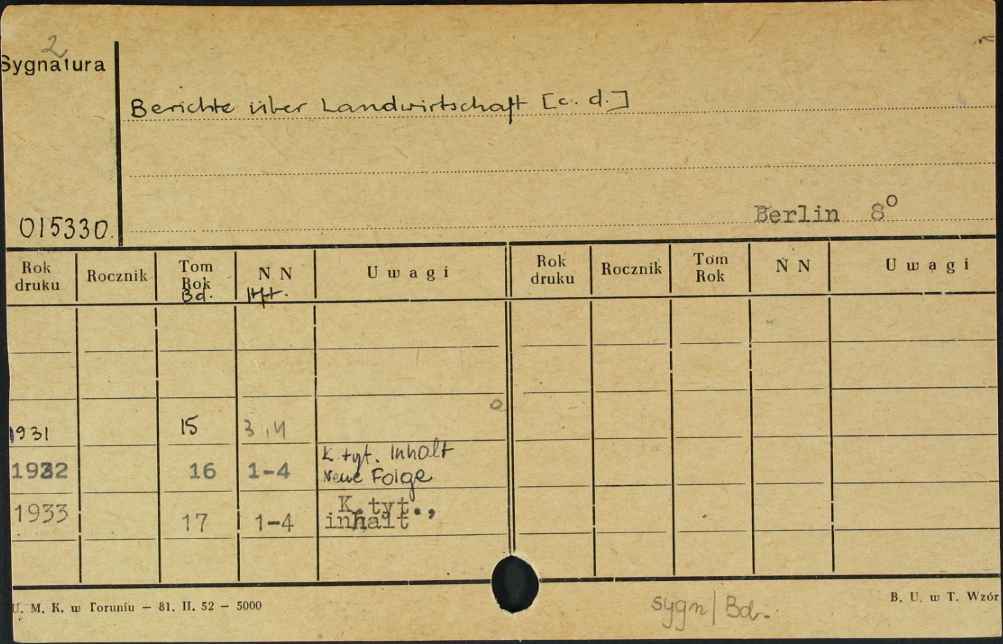 2
Sygnatura
Berichte über Landwirtschaft [c. d.]
015330
Berlin 8°
Rok druku Rocznik Tom Rok Bd. N N Hft. Uwagi Rok druku Rocznik Tom Rok N N Uwagi
1931 15 3,4
1932 16 1-4 K. tyt. Inhalt
Neue Folge
1933 17 1-4 K. tyt.,
inhalt
U. M. K. w Toruniu — 81. II. 52 — 5000
sygn/Bd.
B. U. w T. Wzór